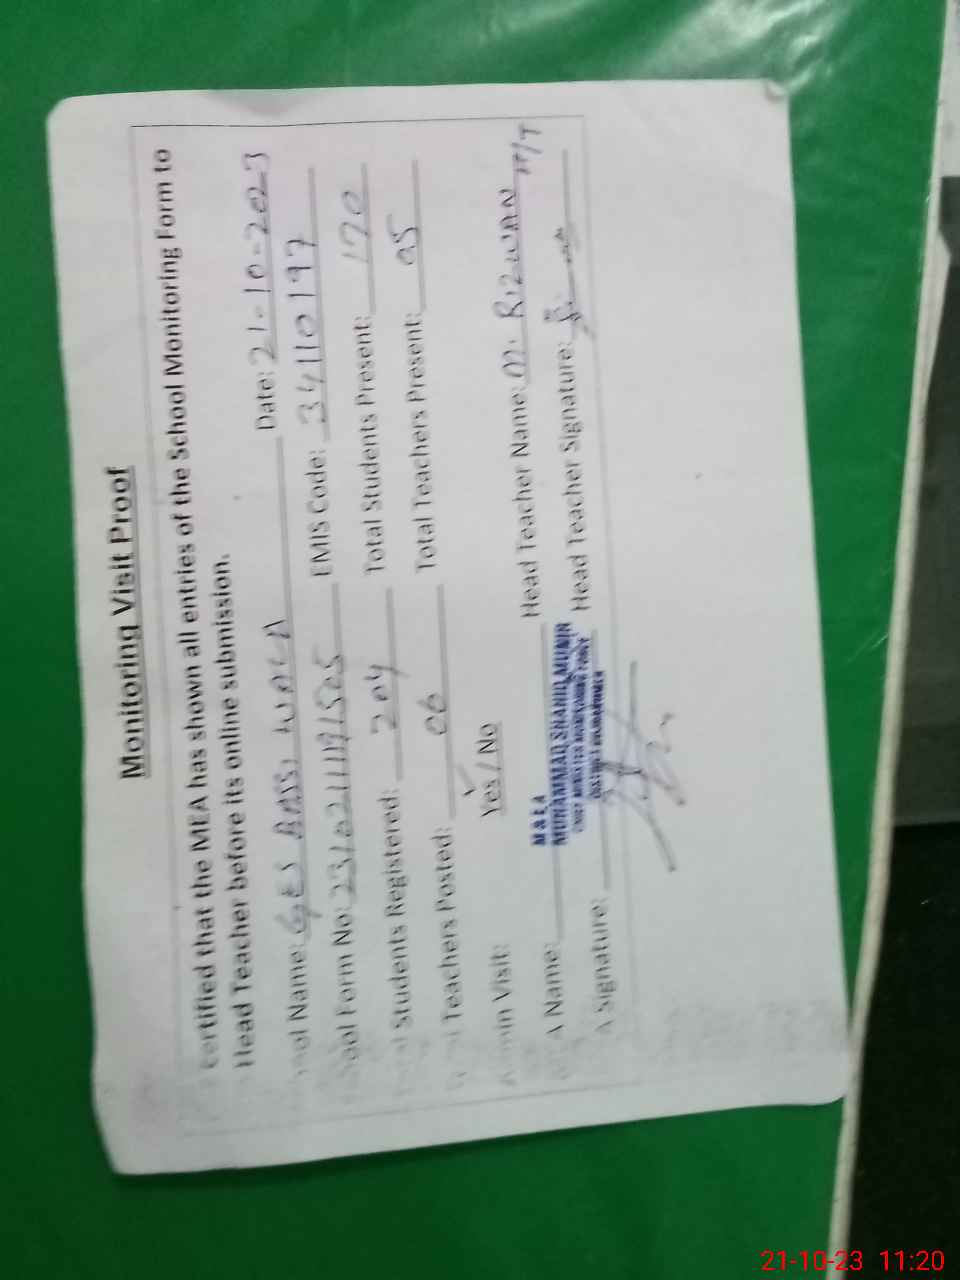 Monitoring Visit Proof
certified that the MEA has shown all entries of the School Monitoring Form to
Head Teacher before its online submission.
ool Name: GES BASSI WALA Date: 21-10-2023
ool Form No: EMIS Code: 34110197
Students Registered: 204 Total Students Present: 170
Teachers Posted: 06 Total Teachers Present: 05
Visit: Yes / No
M & E A
A Name: MUHAMMAD Head Teacher Name: M. RIZWAN
A Signature: Head Teacher Signature:
21-10-23 11:20